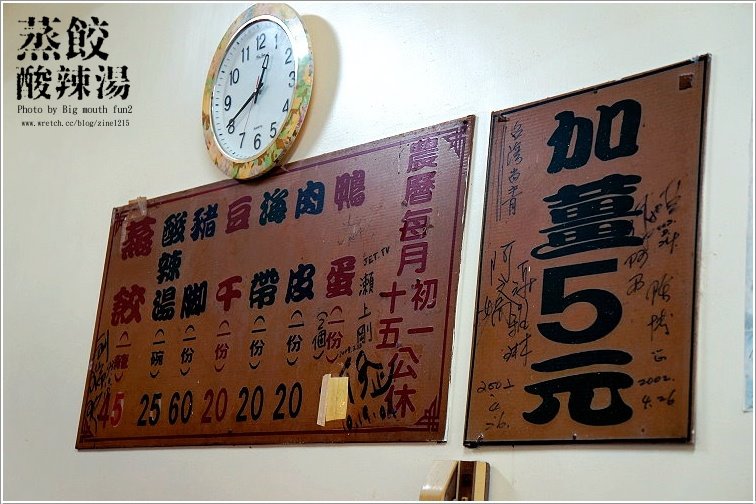 蒸餃
酸辣湯
Photo by Big mouth fun2
www.wretch.cc/blog/zine1215
12
1
2
3
4
5
6
7
8
9
10
11
QUARTZ
農曆每月初一
十五公休
鴨蛋(一份)(2個)
肉皮(一份)20
海帶(一份)20
豆干(一份)20
豬腳(一份)60
酸辣湯(一碗)25
蒸餃(一籠)45
JET.TV
瀨上剛
加薑5元
台灣尚青
2002.
4.26